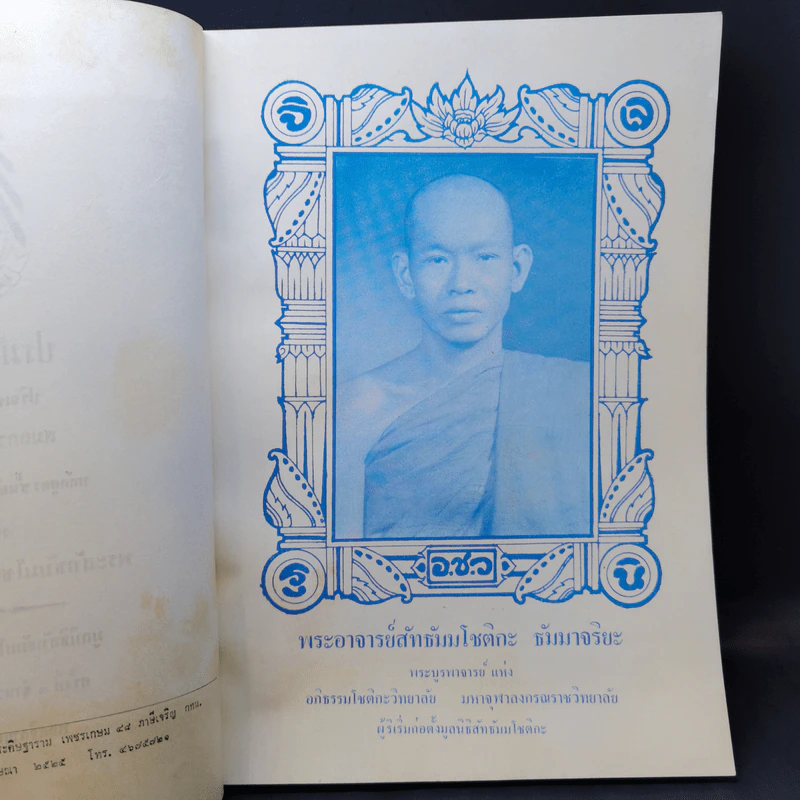 จิ
เจ
รุ
นิ
อ.ช.ว
พระอาจารย์สัทธัมมโชติกะ ธัมมาจริยะ
พระบูรพาจารย์ แห่ง
อภิธรรมโชติกะวิทยาลัย มหาจุฬาลงกรณราชวิทยาลัย
ผู้ริเริ่มก่อตั้งมูลนิธิสัทธัมมโชติกะ
เพชรเกษม ๔๘ ภาษีเจริญ กทม.
๒๕๒๕ โทร. ๔๖๗๕๗๒๑